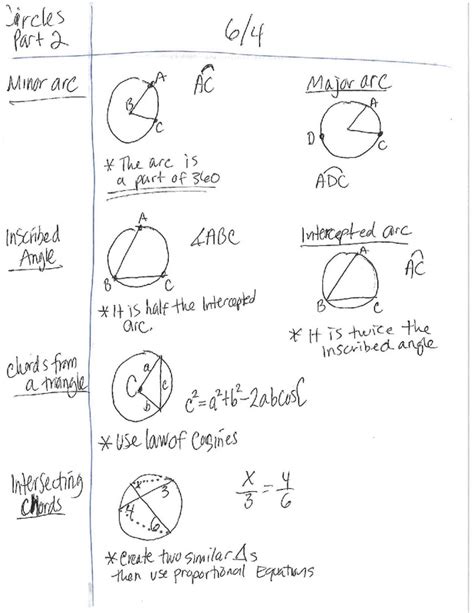 Circles
Part 2
6/4
Minor arc
A
B
C
AC
* The arc is
a part of 360
Major arc
A
D
C
ADC
Inscribed
Angle
A
B
C
∠ABC
* It is half the Intercepted
arc.
Intercepted arc
A
B
C
AC
* It is twice the
Inscribed angle
Chords from
a triangle
a
C
c
b
c²=a²+b²-2abcosC
* Use law of Cosines
Intersecting
Chords
x
3
4
6
x/3 = 4/6
* Create two similar Δs
then use proportional Equations